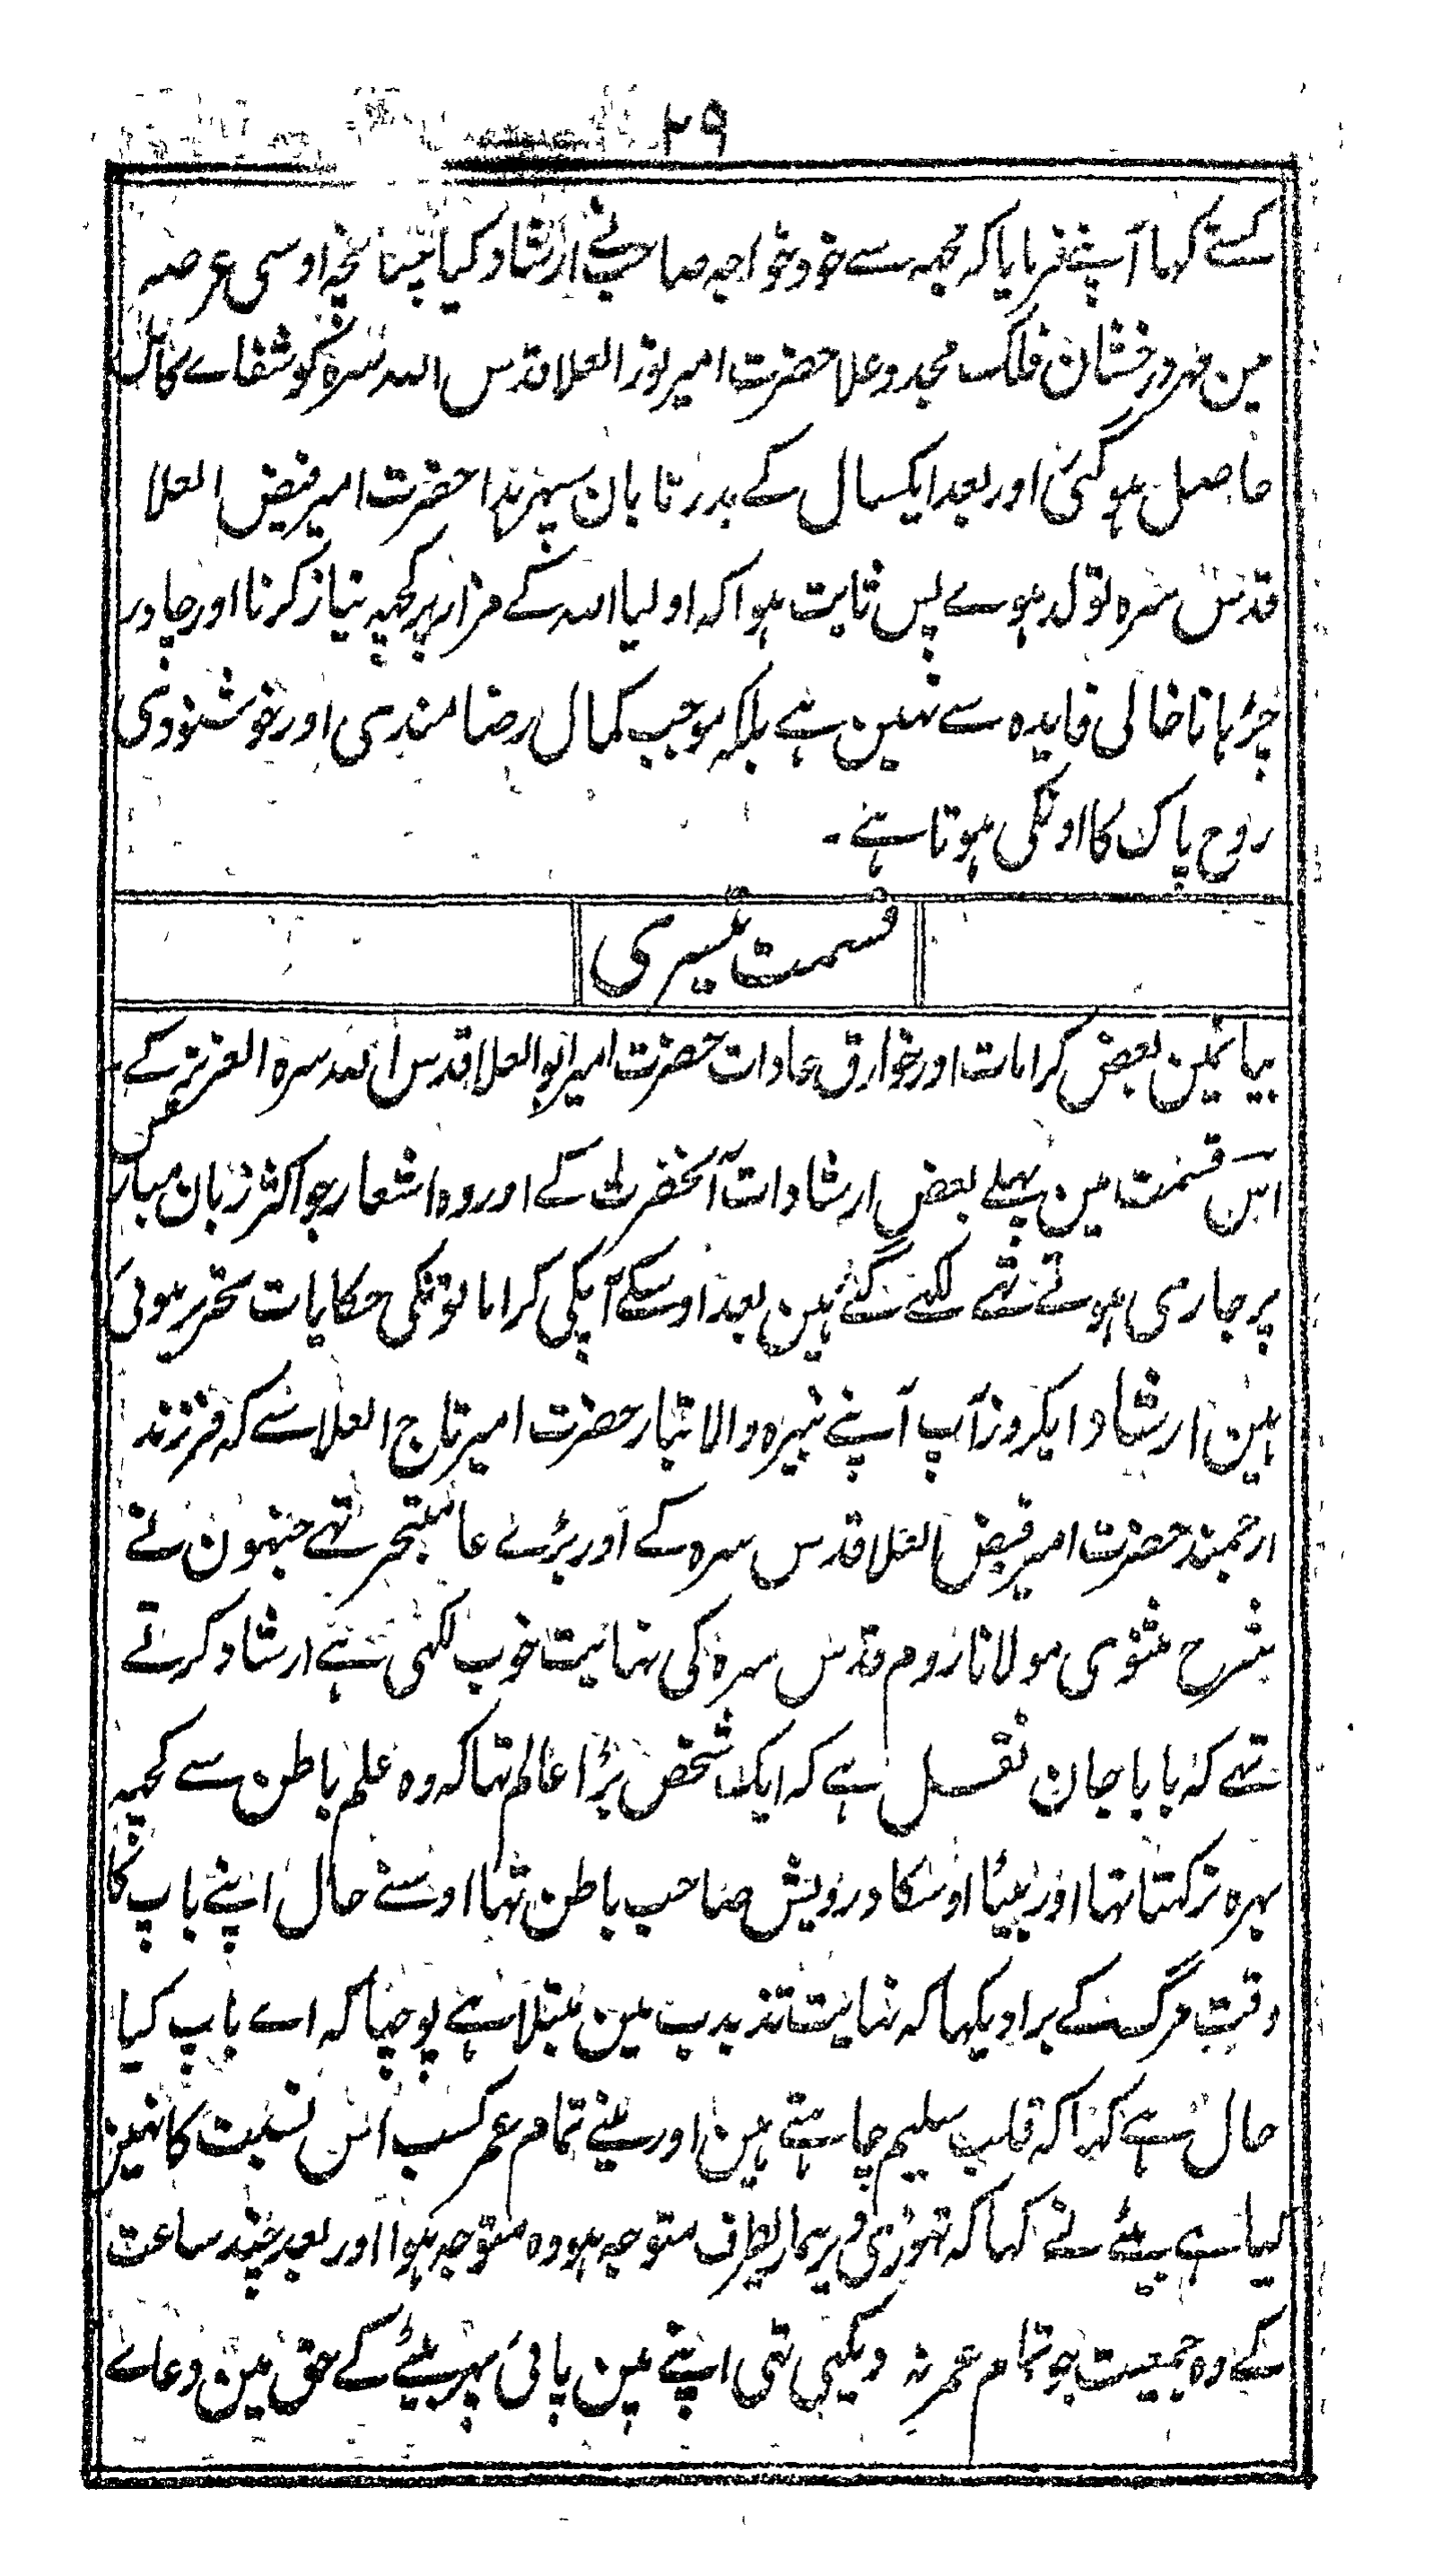 ۲۹
کسنے کہا آپنے فرمایا کہ مجہہ سے خود خواجہ صاحبنے ارشاد کیا چنانچہ اوسی عرصہ
مین مہر درخشان فلک مجد و علا حضرت امیر نور العلا قدس اللہ سرہ کو شفاے کامل
حاصل ہوگئی اور بعد ایکسال کے بدر تابان سپہر ہدا حضرت امیر فیض العلا
قدس سرہ تولد ہوے پس ثابت ہوا کہ اولیا اللہ کے مزار پر کچہہ نیاز کرنا اور چادر
چڑہانا خالی فایدہ سے نہین ہے بلکہ موجب کمال رضامندی اور خوشنودی
روح پاک کا اونکی ہوتا ہے ۔
قسمت تیسری
بیانمین بعض کرامات اور خوارق عادات حضرت امیر ابوالعلا قدس اللہ سرہ العزیز کے
اس قسمت مین پہلے بعض ارشادات آنحضرت کے اور وہ اشعار جو اکثر زبان مبارک
پر جاری ہوتے تہے لکہے گئے ہین بعد اوسکے آپکی کراماتونکی حکایات تحریر ہوئی
ہین ارشاد ایکروز آپ اپنے نبیرہ والا تبار حضرت امیر تاج العلا سے کہ فرزند
ارجمند حضرت امیر فیض العلا قدس سرہ کے اور بڑے عالم متبحر تہے جنہون نے
شرح مثنوی مولانا روم قدس سرہ کی نہایت خوب لکہی ہے ارشاد کرتے
تہے کہ بابا جان نقل ہے کہ ایک شخص بڑا عالم تہا کہ وہ علم باطن سے کچہہ
بہرہ نرکہتا تہا اور بیٹا اوسکا درویش صاحب باطن تہا اوسنے حال اپنے باپ کا
وقت مرگ کے برا دیکہا کہ نہایت تذبذب مین مبتلا ہے پوچہا کہ اے باپ کیا
حال ہے کہا کہ قلب سلیم چاہتے ہین اور مینے تمام عمر کسب اس نسبت کا نہین
کیا ہے بیٹے نے کہا کہ تہوڑی دیر ہماریطرف متوجہ ہو وہ متوجہ ہوا اور بعد چند ساعت
کے وہ جمعیت جو تمام عمر نہ دیکہی تہی اپنے مین پائی پہر بیٹے کے حق مین دعاے